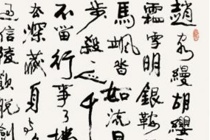 趙客縵胡纓
霜雪明銀鞍
馬颯沓如流星
步殺一人千
不留行事了拂
去深藏身
信陵飲脫劍